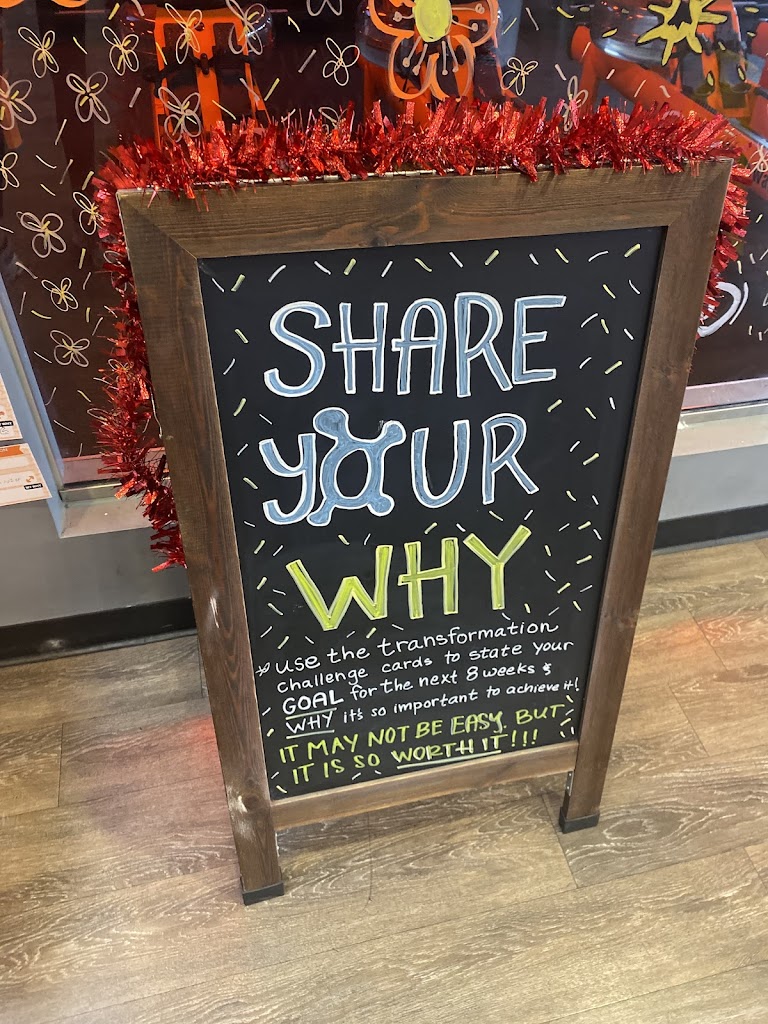 SHARE
YOUR
WHY
* use the transformation
challenge cards to state your
GOAL for the next 8 weeks &
WHY it's so important to achieve it!
IT MAY NOT BE EASY, BUT
IT IS SO WORTH IT!!!